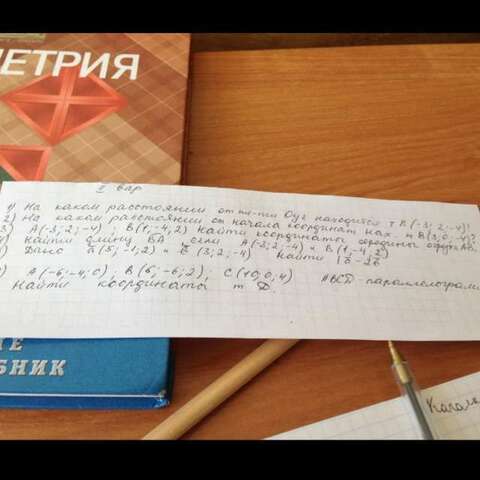 ЕТРИЯ
II вар
1) На каком расстоянии от пл-ти Oyz находится т. B(-3; 2; -4)?
2) На каком расстоянии от начала координат нах. т. B(3; 0; -4)?
3) A(-3; 2; -4); B(1; -4; 2) Найти координаты середины отрезка AB.
4) Найти длину BA если A(-3; 2; -4) и B(1; -4; 2)
5) Дано a(5; -1; 2) и b(3; 2; -4) Найти |a - 2b|
) A(-6; -4; 0); B(6; -6; 2); C(10; 0; 4) ABCD - параллелограмм
Найти координаты т D.
БНИК